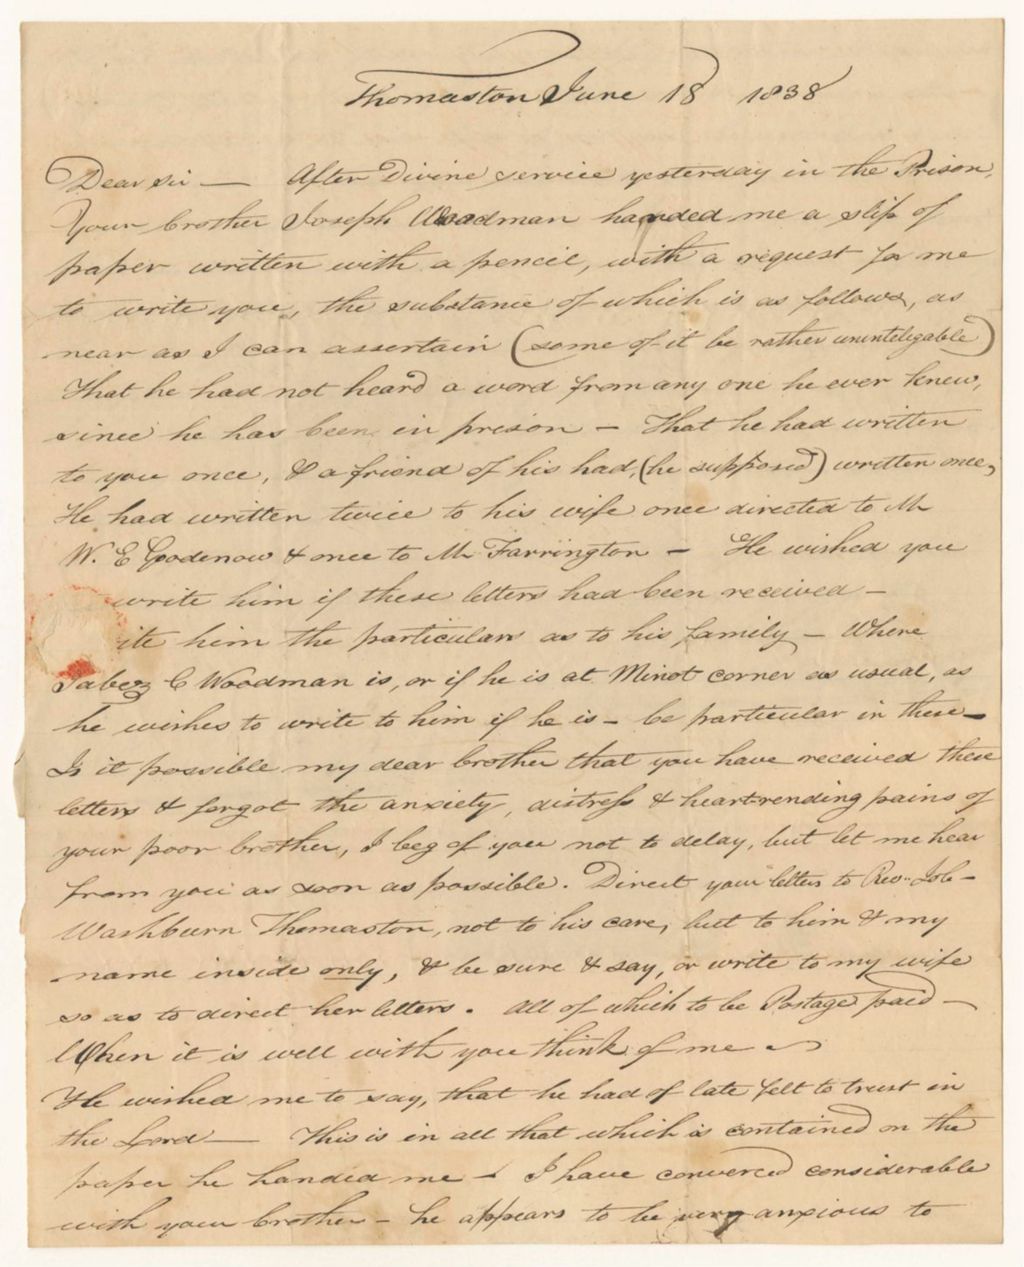 Thomaston June 18 1838
Dear Sir — After Divine service yesterday in the Prison,
Your brother Joseph Woodman handed me a slip of
paper written with a pencil, with a request for me
to write you, the substance of which is as follows, as
near as I can assertain (some of it be rather uninteligable)
That he had not heard a word from any one he ever knew,
since he has been in prison — That he had written
to you once, & a friend of his had, (he supposed) written once,
He had written twice to his wife once directed to Mr
W. E Goodenow & once to Mr Farrington — He wished you
write him if these letters had been received —
ite him the particulars as to his family — Where
Jabez C Woodman is, or if he is at Minot corner as usual, as
he wishes to write to him if he is — be particular in these —
Is it possible my dear brother that you have received these
letters & forgot the anxiety, distress & heart-rending pains of
your poor brother, I beg of you not to delay, but let me hear
from you as soon as possible. Direct your letters to Rev. Job
Washburn Thomaston, not to his care, but to him & my
name inside only, & be sure & say, or write to my wife
so as to direct her letters. All of which to be Postage paid —
When it is well with you think of me —
He wished me to say, that he had of late felt to trust in
the Lord — This is in all that which is contained on the
paper he handed me — I have conversed considerable
with your brother — he appears to be very anxious to